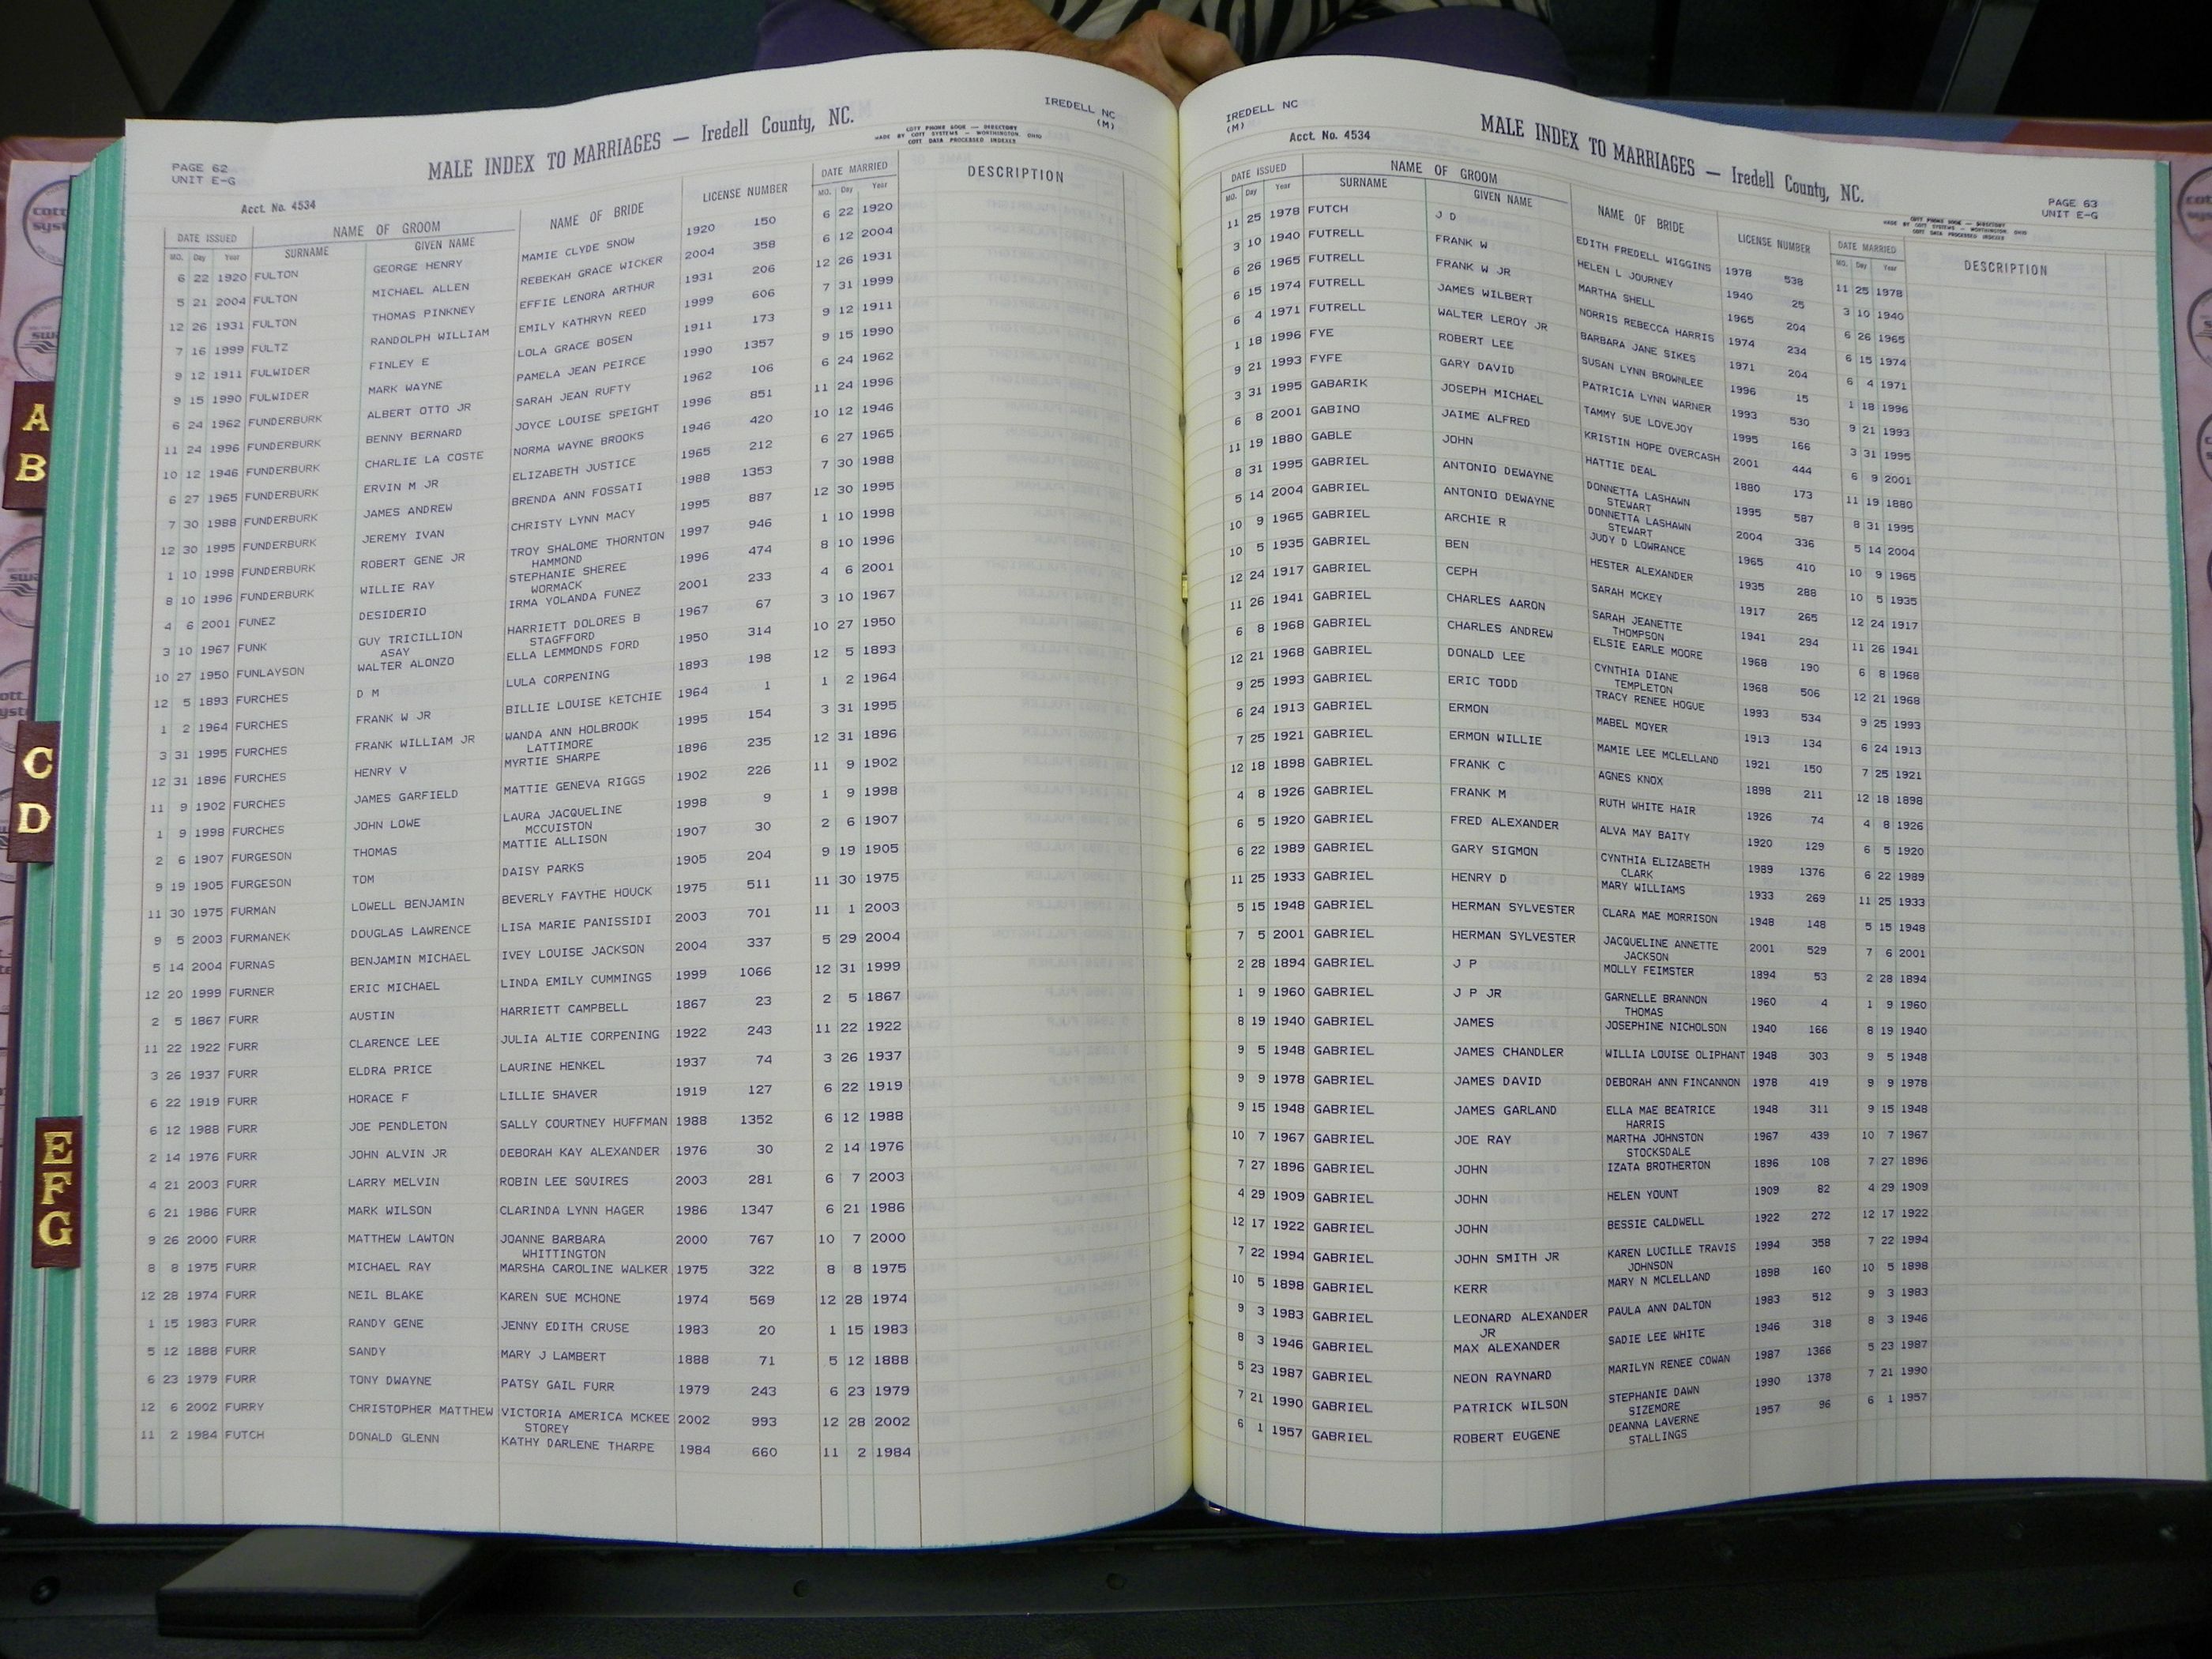 PAGE 62
UNIT E-G
Acct. No. 4534
MALE INDEX TO MARRIAGES — Iredell County, NC.
COTT PHONE BOOK — DIRECTORY
MADE BY COTT SYSTEMS — WORTHINGTON, OHIO
COTT DATA PROCESSED INDEXES
IREDELL NC
(M)
DATE ISSUED NAME OF GROOM NAME OF BRIDE LICENSE NUMBER DATE MARRIED DESCRIPTION
MO. Day Year SURNAME GIVEN NAME MO. Day Year
6 22 1920 FULTON GEORGE HENRY MAMIE CLYDE SNOW 1920 150 6 22 1920
5 21 2004 FULTON MICHAEL ALLEN REBEKAH GRACE WICKER 2004 358 6 12 2004
12 26 1931 FULTON THOMAS PINKNEY EFFIE LENORA ARTHUR 1931 206 12 26 1931
7 16 1999 FULTZ RANDOLPH WILLIAM EMILY KATHRYN REED 1999 606 7 31 1999
9 12 1911 FULWIDER FINLEY E LOLA GRACE BOSEN 1911 173 9 12 1911
9 15 1990 FULWIDER MARK WAYNE PAMELA JEAN PEIRCE 1990 1357 9 15 1990
6 24 1962 FUNDERBURK ALBERT OTTO JR SARAH JEAN RUFTY 1962 106 6 24 1962
11 24 1996 FUNDERBURK BENNY BERNARD JOYCE LOUISE SPEIGHT 1996 851 11 24 1996
10 12 1946 FUNDERBURK CHARLIE LA COSTE NORMA WAYNE BROOKS 1946 420 10 12 1946
6 27 1965 FUNDERBURK ERVIN M JR ELIZABETH JUSTICE 1965 212 6 27 1965
7 30 1988 FUNDERBURK JAMES ANDREW BRENDA ANN FOSSATI 1988 1353 7 30 1988
12 30 1995 FUNDERBURK JEREMY IVAN CHRISTY LYNN MACY 1995 887 12 30 1995
1 10 1998 FUNDERBURK ROBERT GENE JR TROY SHALOME THORNTON 1997 946 1 10 1998
HAMMOND
8 10 1996 FUNDERBURK WILLIE RAY STEPHANIE SHEREE 1996 474 8 10 1996
WORMACK
4 6 2001 FUNEZ DESIDERIO IRMA YOLANDA FUNEZ 2001 233 4 6 2001
3 10 1967 FUNK GUY TRICILLION HARRIETT DOLORES B 1967 67 3 10 1967
ASAY STAGFFORD
10 27 1950 FUNLAYSON WALTER ALONZO ELLA LEMMONDS FORD 1950 314 10 27 1950
12 5 1893 FURCHES D M LULA CORPENING 1893 198 12 5 1893
1 2 1964 FURCHES FRANK W JR BILLIE LOUISE KETCHIE 1964 1 1 2 1964
3 31 1995 FURCHES FRANK WILLIAM JR WANDA ANN HOLBROOK 1995 154 3 31 1995
LATTIMORE
12 31 1896 FURCHES HENRY V MYRTIE SHARPE 1896 235 12 31 1896
11 9 1902 FURCHES JAMES GARFIELD MATTIE GENEVA RIGGS 1902 226 11 9 1902
1 9 1998 FURCHES JOHN LOWE LAURA JACQUELINE 1998 9 1 9 1998
MCCUISTON
2 6 1907 FURGESON THOMAS MATTIE ALLISON 1907 30 2 6 1907
9 19 1905 FURGESON TOM DAISY PARKS 1905 204 9 19 1905
11 30 1975 FURMAN LOWELL BENJAMIN BEVERLY FAYTHE HOUCK 1975 511 11 30 1975
9 5 2003 FURMANEK DOUGLAS LAWRENCE LISA MARIE PANISSIDI 2003 701 11 1 2003
5 14 2004 FURNAS BENJAMIN MICHAEL IVEY LOUISE JACKSON 2004 337 5 29 2004
12 20 1999 FURNER ERIC MICHAEL LINDA EMILY CUMMINGS 1999 1066 12 31 1999
2 5 1867 FURR AUSTIN HARRIETT CAMPBELL 1867 23 2 5 1867
11 22 1922 FURR CLARENCE LEE JULIA ALTIE CORPENING 1922 243 11 22 1922
3 26 1937 FURR ELDRA PRICE LAURINE HENKEL 1937 74 3 26 1937
6 22 1919 FURR HORACE F LILLIE SHAVER 1919 127 6 22 1919
6 12 1988 FURR JOE PENDLETON SALLY COURTNEY HUFFMAN 1988 1352 6 12 1988
2 14 1976 FURR JOHN ALVIN JR DEBORAH KAY ALEXANDER 1976 30 2 14 1976
4 21 2003 FURR LARRY MELVIN ROBIN LEE SQUIRES 2003 281 6 7 2003
6 21 1986 FURR MARK WILSON CLARINDA LYNN HAGER 1986 1347 6 21 1986
9 26 2000 FURR MATTHEW LAWTON JOANNE BARBARA 2000 767 10 7 2000
WHITTINGTON
8 8 1975 FURR MICHAEL RAY MARSHA CAROLINE WALKER 1975 322 8 8 1975
12 28 1974 FURR NEIL BLAKE KAREN SUE MCHONE 1974 569 12 28 1974
1 15 1983 FURR RANDY GENE JENNY EDITH CRUSE 1983 20 1 15 1983
5 12 1888 FURR SANDY MARY J LAMBERT 1888 71 5 12 1888
6 23 1979 FURR TONY DWAYNE PATSY GAIL FURR 1979 243 6 23 1979
12 6 2002 FURRY CHRISTOPHER MATTHEW VICTORIA AMERICA MCKEE 2002 993 12 28 2002
STOREY
11 2 1984 FUTCH DONALD GLENN KATHY DARLENE THARPE 1984 660 11 2 1984
IREDELL NC
(M)
Acct. No. 4534
MALE INDEX TO MARRIAGES — Iredell County, NC.
COTT PHONE BOOK — DIRECTORY
MADE BY COTT SYSTEMS — WORTHINGTON, OHIO
COTT DATA PROCESSED INDEXES
PAGE 63
UNIT E-G
DATE ISSUED NAME OF GROOM NAME OF BRIDE LICENSE NUMBER DATE MARRIED DESCRIPTION
MO. Day Year SURNAME GIVEN NAME MO. Day Year
11 25 1978 FUTCH J D EDITH FREDELL WIGGINS 1978 538 11 25 1978
3 10 1940 FUTRELL FRANK W HELEN L JOURNEY 1940 25 3 10 1940
6 26 1965 FUTRELL FRANK W JR MARTHA SHELL 1965 204 6 26 1965
6 15 1974 FUTRELL JAMES WILBERT NORRIS REBECCA HARRIS 1974 234 6 15 1974
6 4 1971 FUTRELL WALTER LEROY JR BARBARA JANE SIKES 1971 204 6 4 1971
1 18 1996 FYE ROBERT LEE SUSAN LYNN BROWNLEE 1996 15 1 18 1996
9 21 1993 FYFE GARY DAVID PATRICIA LYNN WARNER 1993 530 9 21 1993
3 31 1995 GABARIK JOSEPH MICHAEL TAMMY SUE LOVEJOY 1995 166 3 31 1995
6 8 2001 GABINO JAIME ALFRED KRISTIN HOPE OVERCASH 2001 444 6 9 2001
11 19 1880 GABLE JOHN HATTIE DEAL 1880 173 11 19 1880
8 31 1995 GABRIEL ANTONIO DEWAYNE DONNETTA LASHAWN 1995 587 8 31 1995
STEWART
5 14 2004 GABRIEL ANTONIO DEWAYNE DONNETTA LASHAWN 2004 336 5 14 2004
STEWART
10 9 1965 GABRIEL ARCHIE R JUDY D LOWRANCE 1965 410 10 9 1965
10 5 1935 GABRIEL BEN HESTER ALEXANDER 1935 288 10 5 1935
12 24 1917 GABRIEL CEPH SARAH MCKEY 1917 265 12 24 1917
11 26 1941 GABRIEL CHARLES AARON SARAH JEANETTE 1941 294 11 26 1941
THOMPSON
6 8 1968 GABRIEL CHARLES ANDREW ELSIE EARLE MOORE 1968 190 6 8 1968
12 21 1968 GABRIEL DONALD LEE CYNTHIA DIANE 1968 506 12 21 1968
TEMPLETON
9 25 1993 GABRIEL ERIC TODD TRACY RENEE HOGUE 1993 534 9 25 1993
6 24 1913 GABRIEL ERMON MABEL MOYER 1913 134 6 24 1913
7 25 1921 GABRIEL ERMON WILLIE MAMIE LEE MCLELLAND 1921 150 7 25 1921
12 18 1898 GABRIEL FRANK C AGNES KNOX 1898 211 12 18 1898
4 8 1926 GABRIEL FRANK M RUTH WHITE HAIR 1926 74 4 8 1926
6 5 1920 GABRIEL FRED ALEXANDER ALVA MAY BAITY 1920 129 6 5 1920
6 22 1989 GABRIEL GARY SIGMON CYNTHIA ELIZABETH 1989 1376 6 22 1989
CLARK
11 25 1933 GABRIEL HENRY D MARY WILLIAMS 1933 269 11 25 1933
5 15 1948 GABRIEL HERMAN SYLVESTER CLARA MAE MORRISON 1948 148 5 15 1948
7 5 2001 GABRIEL HERMAN SYLVESTER JACQUELINE ANNETTE 2001 529 7 6 2001
JACKSON
2 28 1894 GABRIEL J P MOLLY FEIMSTER 1894 53 2 28 1894
1 9 1960 GABRIEL J P JR GARNELLE BRANNON 1960 4 1 9 1960
THOMAS
8 19 1940 GABRIEL JAMES JOSEPHINE NICHOLSON 1940 166 8 19 1940
9 5 1948 GABRIEL JAMES CHANDLER WILLIA LOUISE OLIPHANT 1948 303 9 5 1948
9 9 1978 GABRIEL JAMES DAVID DEBORAH ANN FINCANNON 1978 419 9 9 1978
9 15 1948 GABRIEL JAMES GARLAND ELLA MAE BEATRICE 1948 311 9 15 1948
HARRIS
10 7 1967 GABRIEL JOE RAY MARTHA JOHNSTON 1967 439 10 7 1967
STOCKSDALE
7 27 1896 GABRIEL JOHN IZATA BROTHERTON 1896 108 7 27 1896
4 29 1909 GABRIEL JOHN HELEN YOUNT 1909 82 4 29 1909
12 17 1922 GABRIEL JOHN BESSIE CALDWELL 1922 272 12 17 1922
7 22 1994 GABRIEL JOHN SMITH JR KAREN LUCILLE TRAVIS 1994 358 7 22 1994
JOHNSON
10 5 1898 GABRIEL KERR MARY N MCLELLAND 1898 160 10 5 1898
9 3 1983 GABRIEL LEONARD ALEXANDER PAULA ANN DALTON 1983 512 9 3 1983
JR
8 3 1946 GABRIEL MAX ALEXANDER SADIE LEE WHITE 1946 318 8 3 1946
5 23 1987 GABRIEL NEON RAYNARD MARILYN RENEE COWAN 1987 1366 5 23 1987
7 21 1990 GABRIEL PATRICK WILSON STEPHANIE DAWN 1990 1378 7 21 1990
SIZEMORE
6 1 1957 GABRIEL ROBERT EUGENE DEANNA LAVERNE 1957 96 6 1 1957
STALLINGS
A
B
C
D
E
F
G